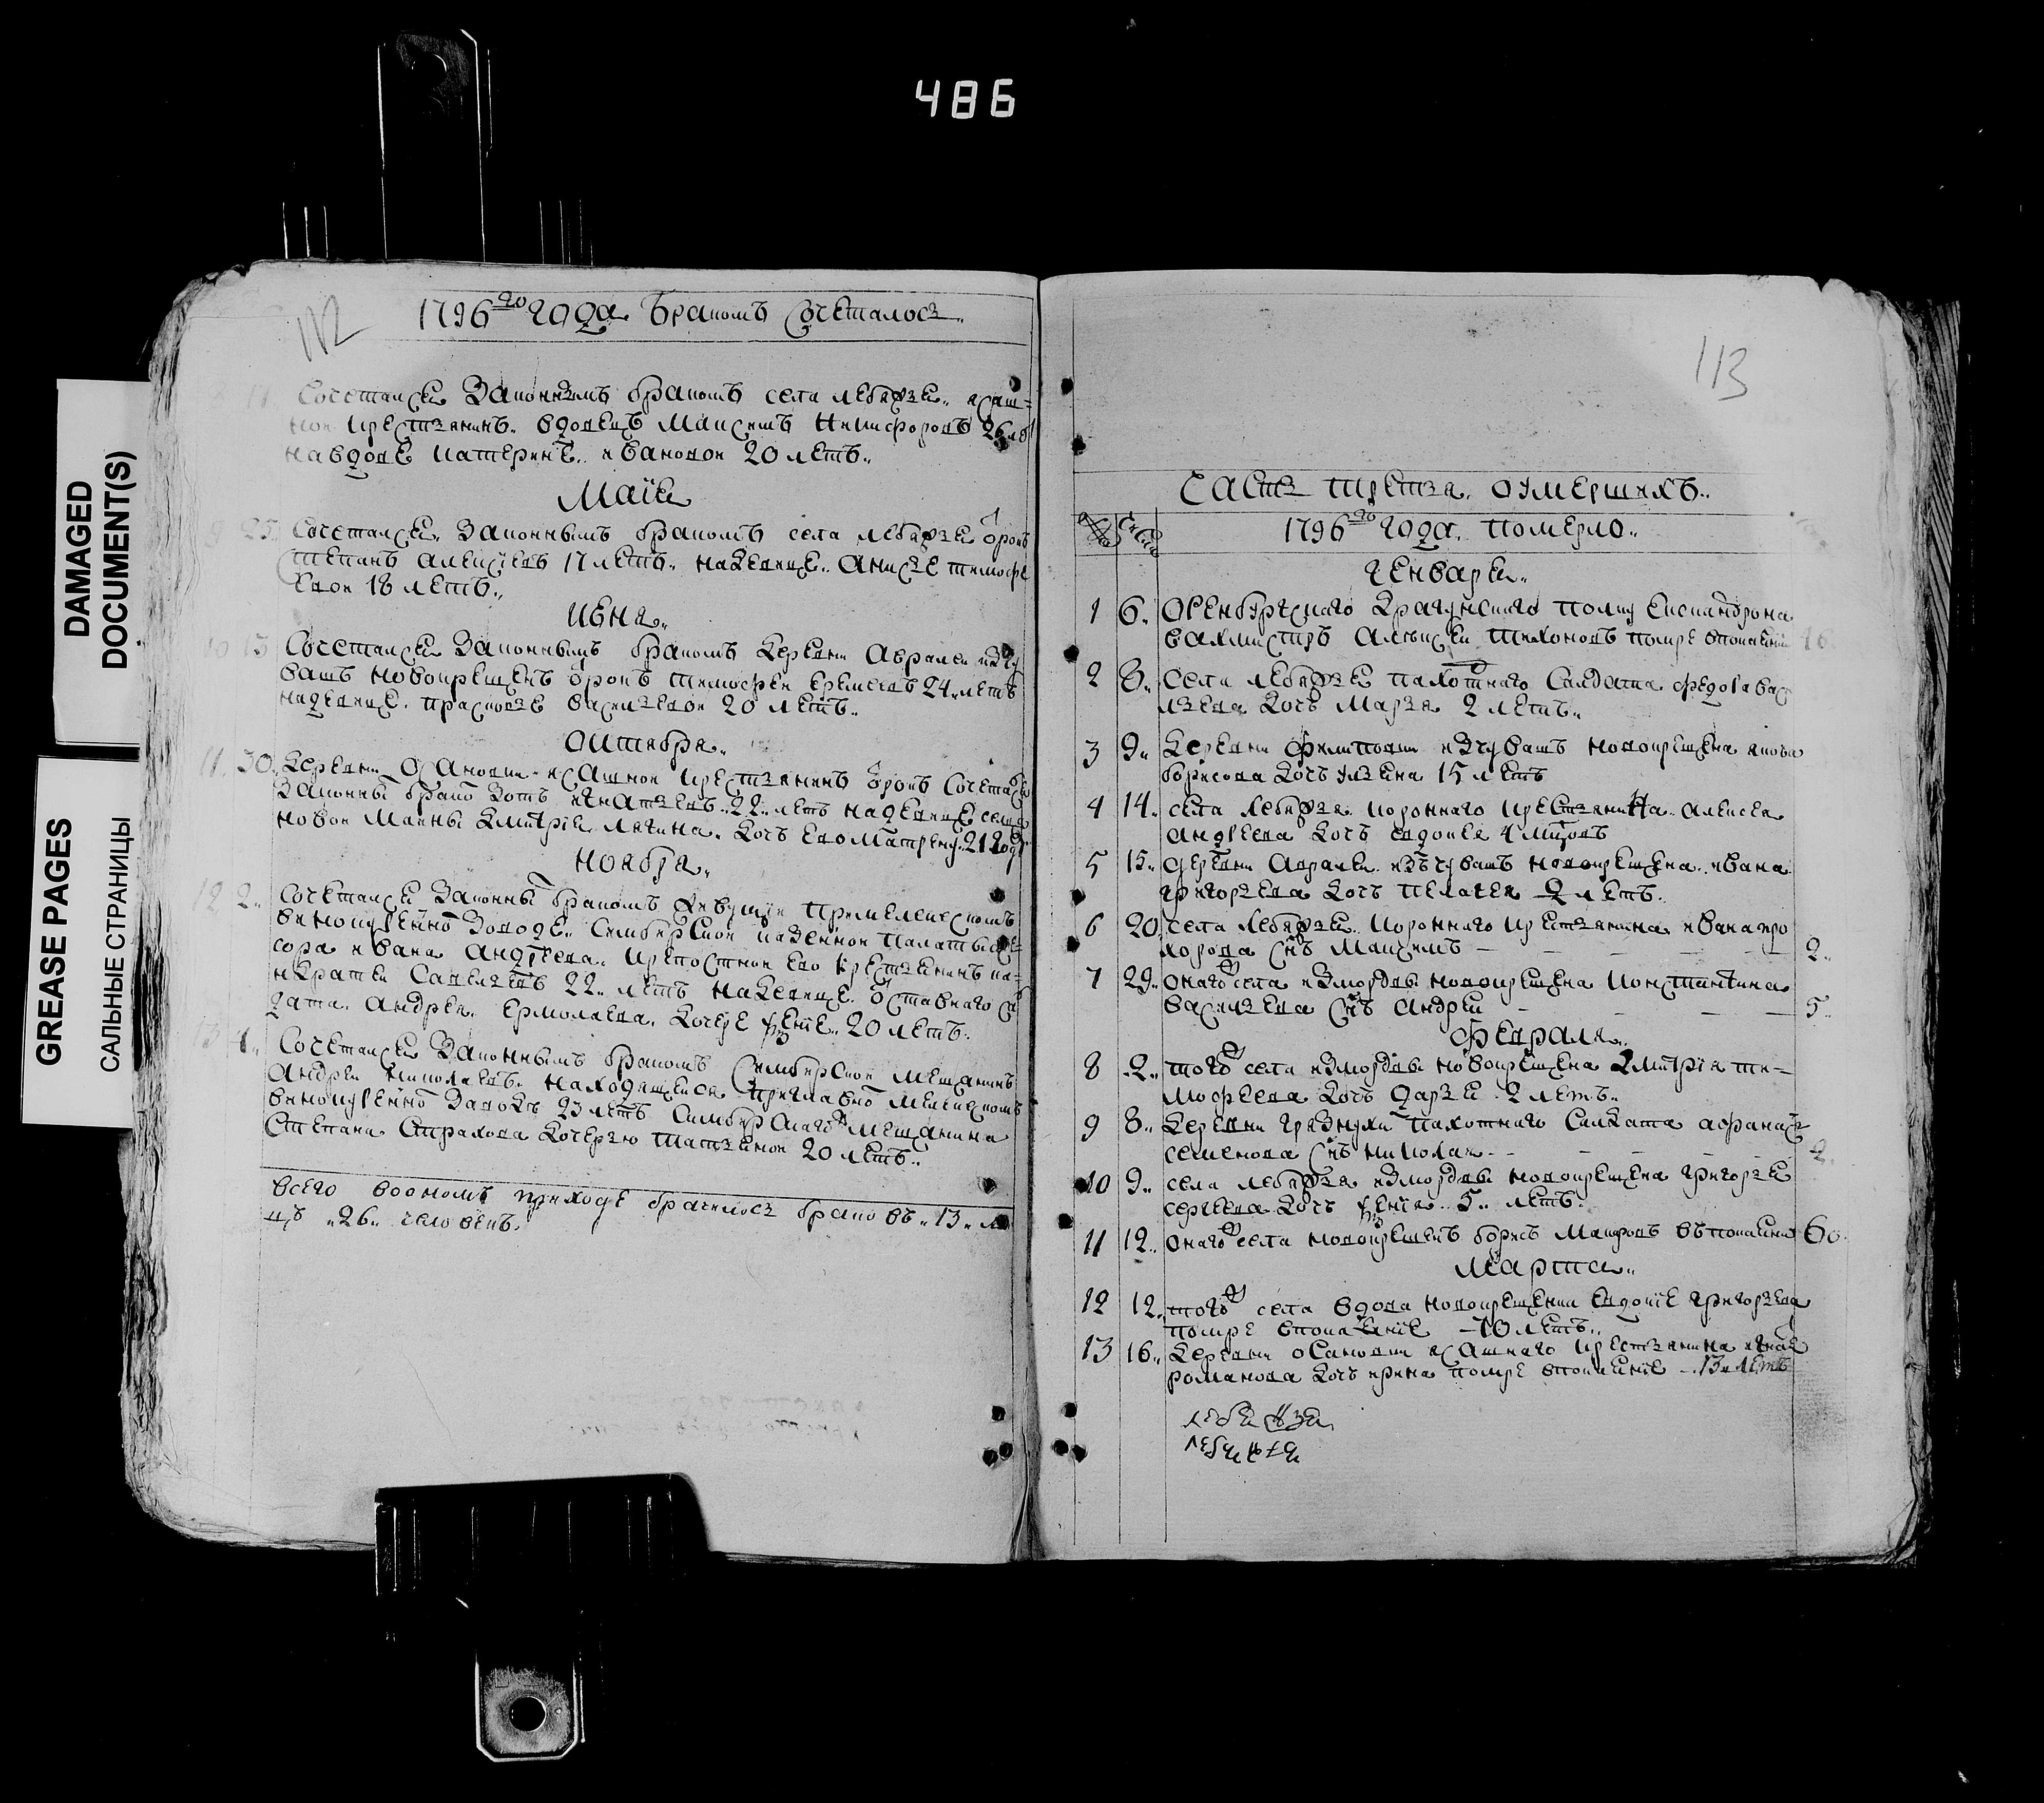 486
DAMAGED
DOCUMENT(S)
GREASE PAGES
САЛЬНЫЕ СТРАНИЦЫ
112
1796го года бракомъ сочеталось
11 Сочетался законнымъ бракомъ села лебяжья ясаш=
ной крестьянинъ вдовецъ Максимъ Никифоровъ 26
на вдове катерине ивановои 20 летъ
Маія
9 25 Сочетался законнымъ бракомъ села лебяжья отрокъ
степанъ алексеевъ 17 летъ на девице анисье тимофе
евои 18 летъ
июня
10 13 Сочетался законнымъ бракомъ деревни Авралеи изчу
вашъ новокрещенъ отрокъ тимофеи еремеевъ 24 летъ
на девице прасковье васильевои 20 летъ
октября
11 30 деревни осановки ясашнои крестьянинъ отрокъ сочетался
законны брако зотъ игнатьевъ 22 летъ на девице села
новои маины дмитрия лягина дочь ево матрену 21 году
ноября
12 2 Сочетался законны бракомъ живущіи при мелекескомъ
винокуренно заводе симбирскои казеннои палаты
сора ивана андреева крепостнои ево крестьянинъ ка=
савельевъ 22 летъ на девице отставного сол
дата андрея ермолаева дочере 20 летъ
13 Сочетался законнымъ бракомъ симбирскои мещанинъ
андреи николаевъ находящеися приглавно мелекескомъ
винокуренно заводъ 23 летъ симбирскаго мещанина
степана страхова дочерью татьянои 20 летъ
всего воономъ приходе брачилось браковъ 13 а
лицъ 26 человекъ
113
Часть третья оумершихъ
число
1796го года померло
генваря
1 6 Оренбургскаго драгунскаго полку ескандрона
вахмистръ алексеи тихоновъ помре впокаянии
2 8 села лебяжья пахотнаго салдата федота вас
ильева дочь марья 2 летъ
3 9 деревни филиповки изчувашъ новокрещена якова
борисова дочь ульяна 15 летъ
4 14 села лебяжья короннаго крестьянина алексея
андреева дочь евдокея 4 мцовъ
5 15 деревни авралеи изъчувашъ новокрещена ивана
григорьева дочь пелагея 2 летъ
6 20 села лебяжья короннаго крестьянина ивана про
хорова снъ максимъ 2
7 29 онаго села измордвы новокрещена константина
васильева снъ андреи 5
февраля
8 2 того села измордвы новокрещена дмитрія ти=
мофеева дочь дарья 2 летъ
9 8 деревни грязнухи пахотнаго салдата афанась
семенова снъ николаи 2
10 9 села лебяжья измордвы новокрещена григорье
сергеева дочь 5 летъ
11 12 онаго села новокрещенъ борисъ въпокаянии 60
марта
12 12 того села вдова новокрещенка евдокіе григорьева
помре впокаяніе 70 летъ
13 16 деревни осановки ясашнаго крестьянина игнат
романова дочь ирина помре впокаяніе 13 летъ